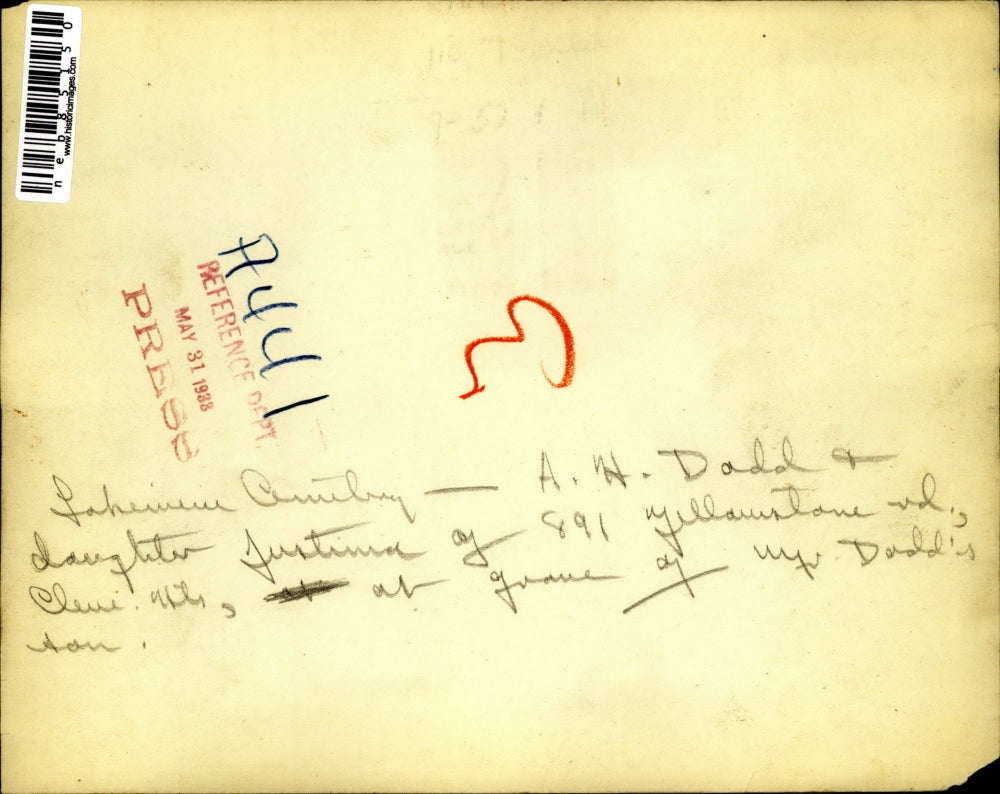 neb85150
www.historicimages.com
A441
REFERENCE DEPT.
MAY 31 1933
PRESS
3
Lakeview Cemetery — A. H. Dodd &
daughter Justina of 891 Yellowstone rd.,
Cleve. Hts, at grave of Mr. Dodd's
son.